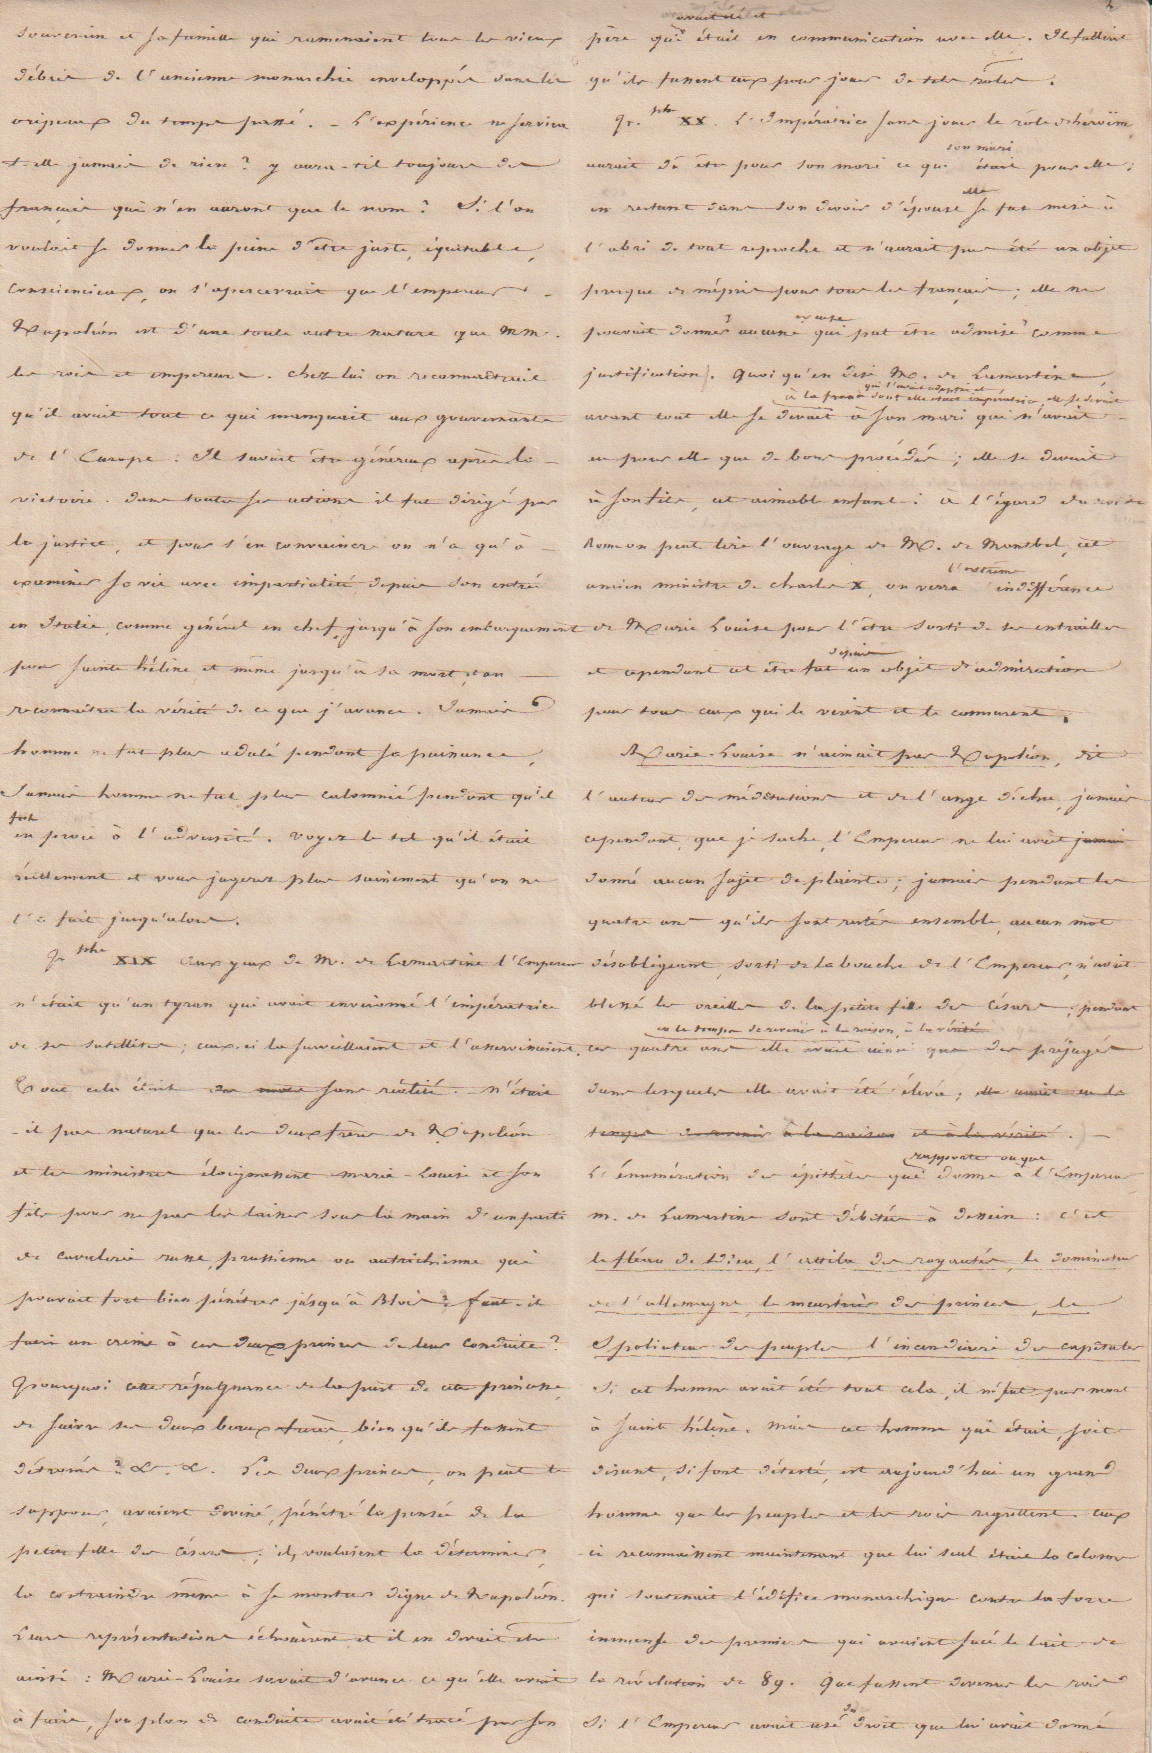 souverain et sa famille qui ramenaient tous les vieux
débris de l'ancienne monarchie enveloppés dans les
oripeaux du temps passé. – L'expérience ne servira
t-elle jamais de rien ? y aura-t-il toujours des
français qui n'en auront que le nom ? Si l'on
voulait se donner la peine d'être juste, équitable,
consciencieux, on s'apercevrait que l'empereur –
Napoléon est d'une toute autre nature que MM.
les rois et empereurs. Chez lui on reconnaîtrait
qu'il avait tout ce qui manquait aux gouvernants
de l'Europe : Il savait être généreux après la –
victoire. dans toutes ses actions il fut dirigé par
la justice, et pour s'en convaincre on n'a qu'à –
examiner sa vie avec impartialité depuis son entrée
en Italie, comme général en chef, jusqu'à son embarquement
pour sainte hélène et même jusqu'à sa mort, et on –
reconnaîtra la vérité de ce que j'avance. Jamais
homme ne fut plus adulé pendant sa puissance,
Jamais homme ne fut plus calomnié pendant qu'il
fut
en proie à l'adversité. Voyez le tel qu'il était
réellement et vous jugerez plus sainement qu'on ne
l'a fait jusqu'alors.
§ phe XIX aux yeux de M. de Lamartine l'Empereur
n'était qu'un tyran qui avait environné l'impératrice
de ses satellites ; ceux-ci la surveillaient et l'asservissaient.
Tout cela était sans réalité. – N'était
-il pas naturel que les deux frères de Napoléon
et les ministres éloignassent Marie-Louise et son
fils pour ne pas les laisser sous la main d'un parti
de cavalerie russe, prussienne ou autrichienne qui
pouvait fort bien pénétrer jusqu'à Blois ? faut-il
faire un crime à ces deux princes de leur conduite ?
Pourquoi cette répugnance de la part de cette princesse,
de suivre ses deux beaux-frères, bien qu'ils fussent
détrônés ? &. &. Ces deux princes, on peut le
supposer, avaient deviné, pénétré la pensée de la
petite fille des césars ; ils voulaient la déterminer,
la contraindre même à se montrer digne de Napoléon.
Leurs représentations échouèrent et il en devait être
ainsi : Marie-Louise savait d'avance ce qu'elle avait
à faire, son plan de conduite avait été tracé par son
avait été et
père qui était en communication avec elle. Il fallait
qu'ils fussent eux pour jouer de tels rôles.
§ phe XX. L'Impératrice sans jouer le rôle d'héroïne,
son mari
aurait dû être pour son mari ce que était pour elle ;
elle
en restant dans son devoir d'épouse se fut mise à
l'abri de tout reproche et n'aurait pas été un objet
presque de mépris pour tous les français ; elle ne
excuse
pouvait donner aucune qui put être admise comme
justification. Quoi qu'en dise M. de Lamartine
qui l'avait adoptée et
à la france dont elle était impératrice, elle se devait
avant tout elle se devait à son mari qui n'avait –
eu pour elle que de bons procédés ; elle se devait
à son fils, cet aimable enfant : à l'égard du roi de
Rome on peut lire l'ouvrage de M. de Montbel, cet
ancien ministre de charles X, on verra
l'extrême
indifférence
de Marie Louise pour l'être sorti de ses entrailles
depuis
et cependant cet être fut un objet d'admiration
pour tous ceux qui le virent et le connurent.
Marie-Louise n'aimait pas Napoléon, dit
l'auteur des méditations et de l'ange déchu, jamais
cependant, que je sache, l'Empereur ne lui avait jamais
donné aucun sujet de plainte ; jamais pendant les
quatre ans qu'ils sont restés ensemble, aucun mot
désobligeant, sorti de la bouche de l'Empereur, n'avait
blessé les oreilles de la petite fille des Césars ; pendant
eu le temps de revenir à la raison, à la vérité
ces quatre ans elle avait ainsi que des préjugés
dans lesquels elle avait été élevée ; elle avait eu le
temps de revenir à la raison et à la vérité. –
rapporte ou que
L'énumération des épithètes que donne à l'Empereur
m. de Lamartine sont débitées à dessein : c'est
le fléau de Dieu, l'attila des royautés, le dominateur
de l'allemagne, le meurtrier des princes, le
spoliateur des peuples, l'incendiaire des capitales
Si cet homme avait été tout cela, il n'fut pas mort
à sainte hélène. Mais cet homme qui était, soit
disant, si fort détesté, est aujourd'hui un grand
homme que les peuples et les rois regrettent. ceux
ci reconnaissent maintenant que lui seul était le colosse
qui soutenait l'édifice monarchique contre la force
immense des premiers qui avaient sucé le lait de
la révolution de 89. Que fussent devenus les rois
du
Si l'Empereur avait usé droit que lui avait donné